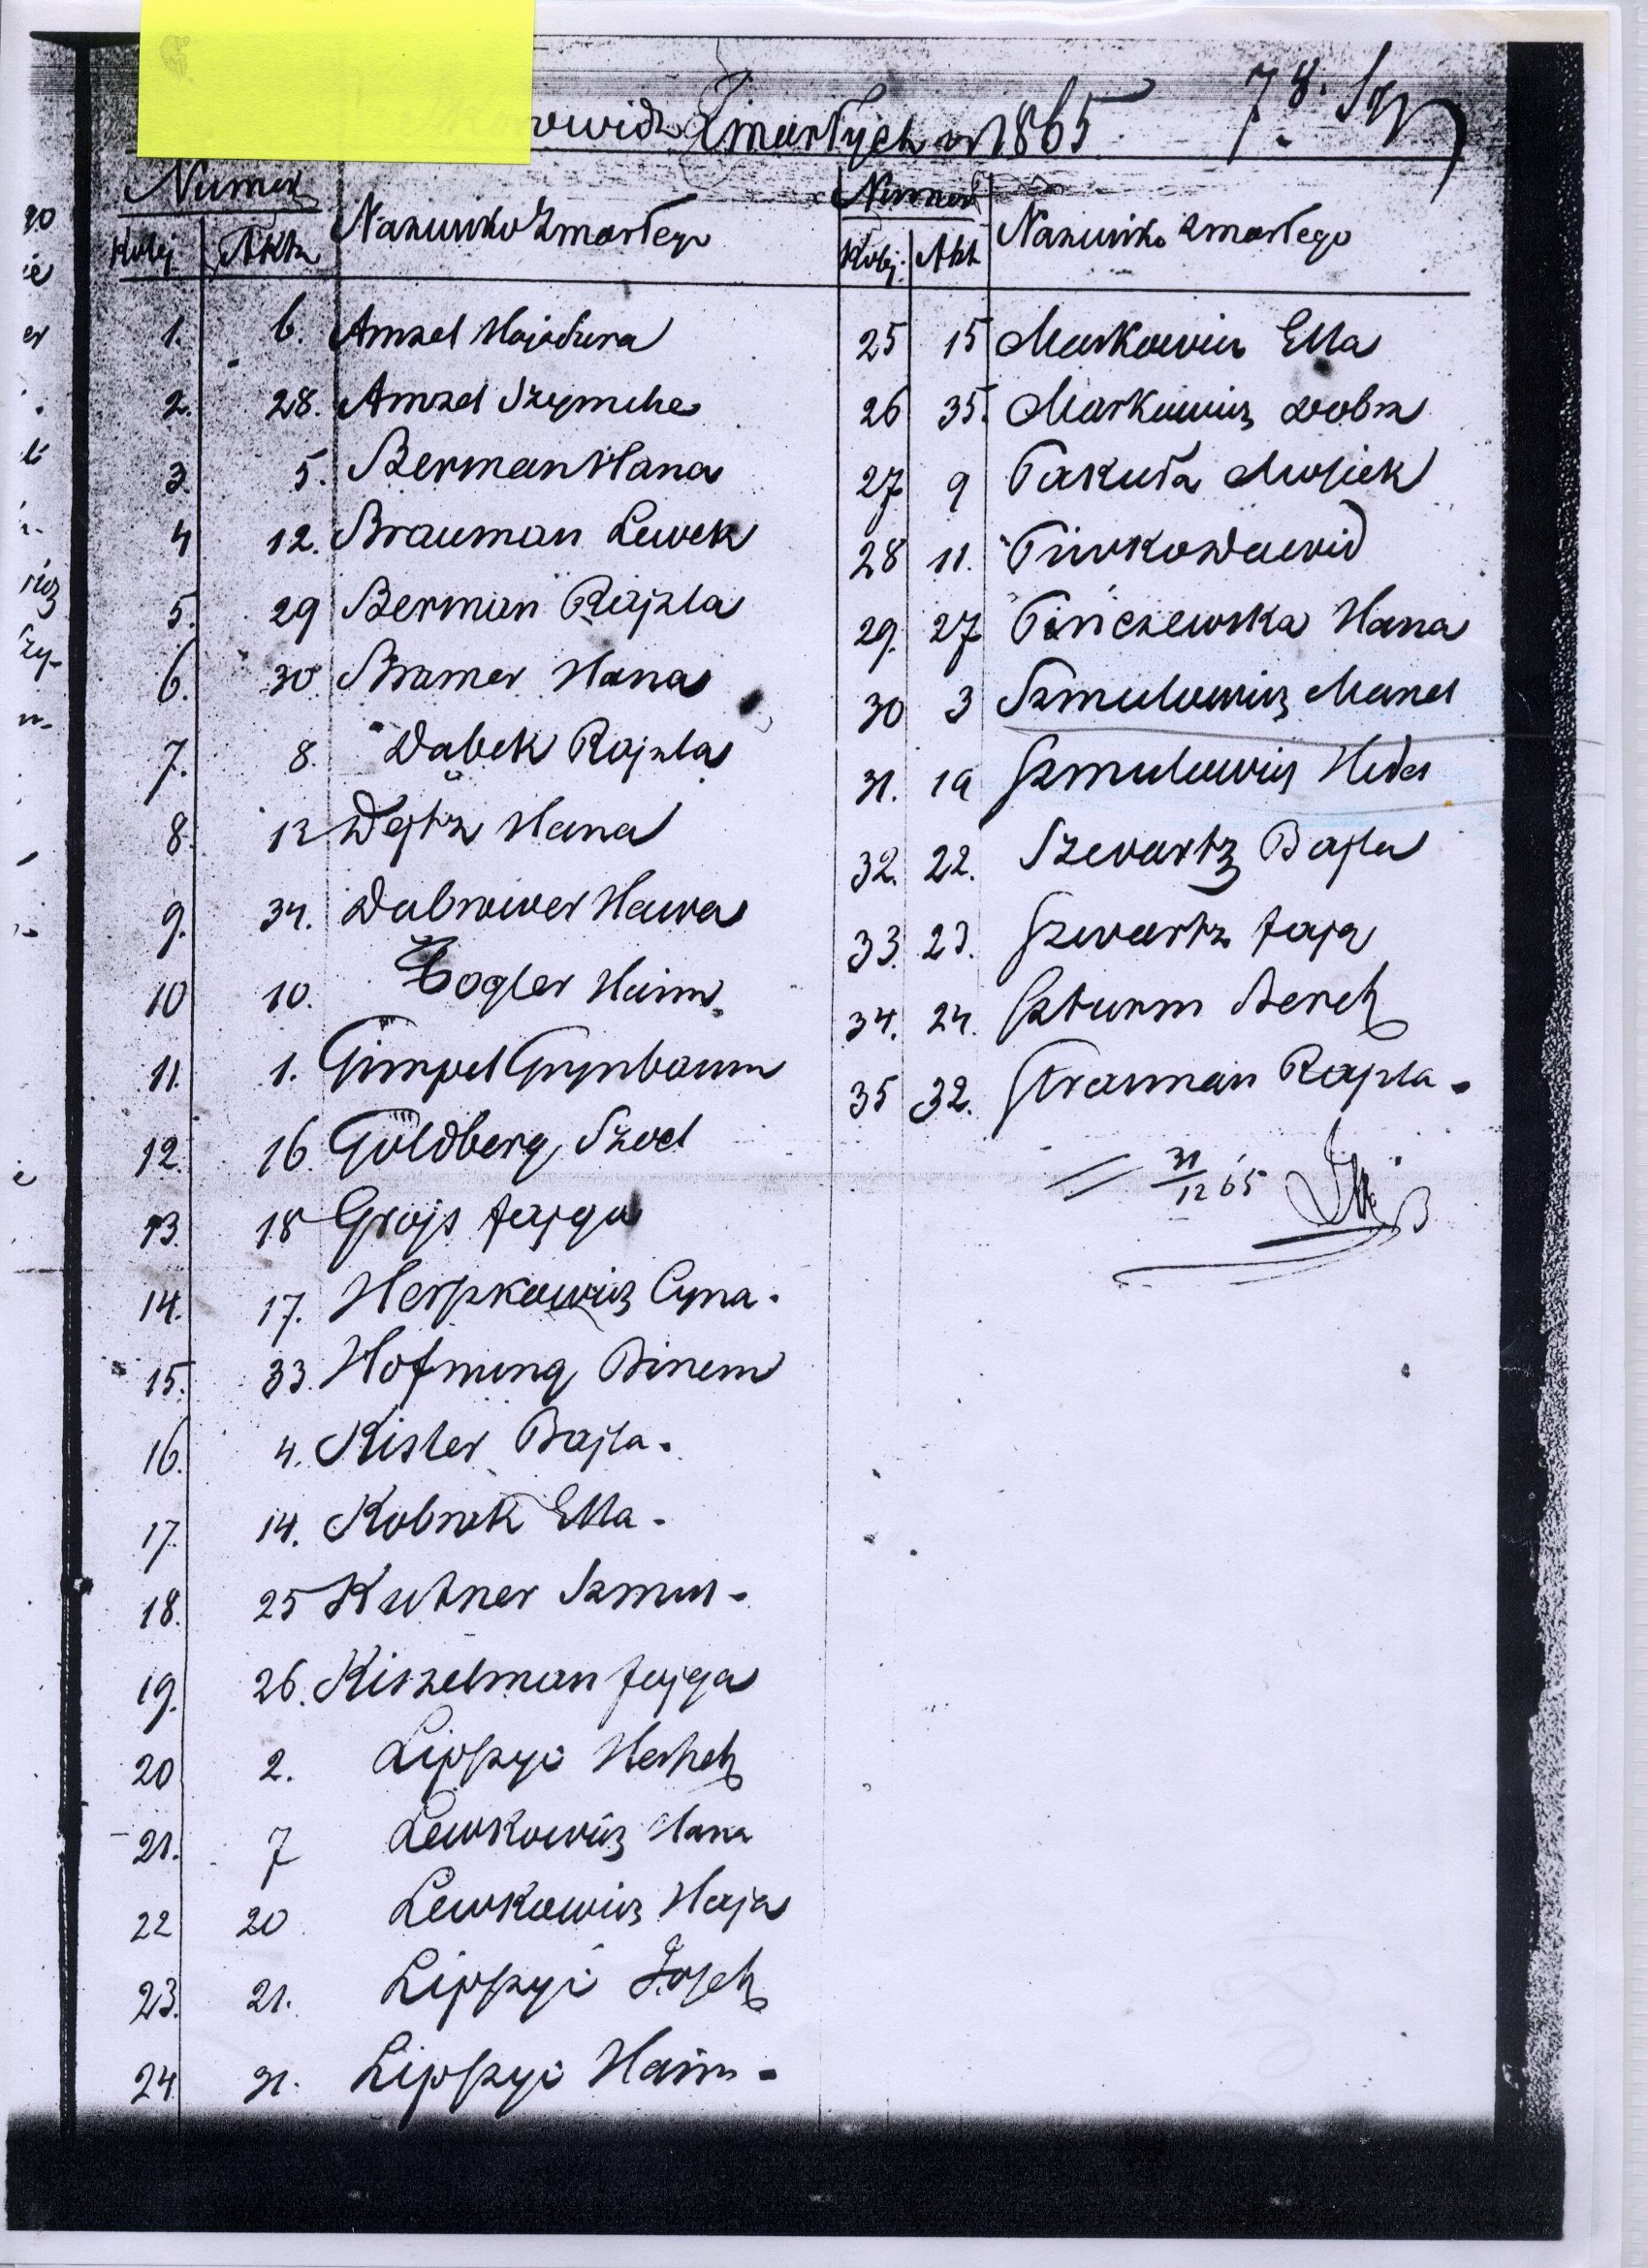 Zmarłych w 1865 78.
Numer Nazwisko Zmarłego
Kolej. Aktu
1. 6. Amzel Hajdura
2. 28. Amzel Szymche
3. 5. Berman Hana
4 12. Brauman Lewek
5. 29 Berman Rajzla
6. 30 Bramer Hana
7. 8. Dabek Rajzla
8. 12 Dejtz Hana
9. 34. Dabrower Hawa
10 10. Fogler Haim
11. 1. Gimpel Grynbaum
12. 16. Goldberg Szoel
13. 18 Grojs Fajga
14. 17. Herszkowicz Cyna.
15. 33. Hofnung Binem
16. 4. Kister Bajla.
17. 14. Kobrek Etta.
18. 25 Kutner Szmul
19. 26. Kiszelman Fajga
20 2. Lipszyc Herszek
21. 7 Lewkowicz Hana
22 20 Lewkowicz Haja
23. 21. Lipszyc Josek
24 31. Lipszyc Haim
Numer Nazwisko Zmarłego
Kolej. Akt
25 15 Markowicz Etta
26 35. Markowicz Dobra
27 9 Pakuła Mosiek
28 11. Pinkos Dawid
29. 27 Pińczewska Hana
30 3 Szmulowicz Manel
31. 19 Szmulowicz Hida
32. 22. Szwartz Bajla
33. 23. Szwartz Faja
34. 24. Szturm Berek
35 32. Strauman Rajzla
31/12 65